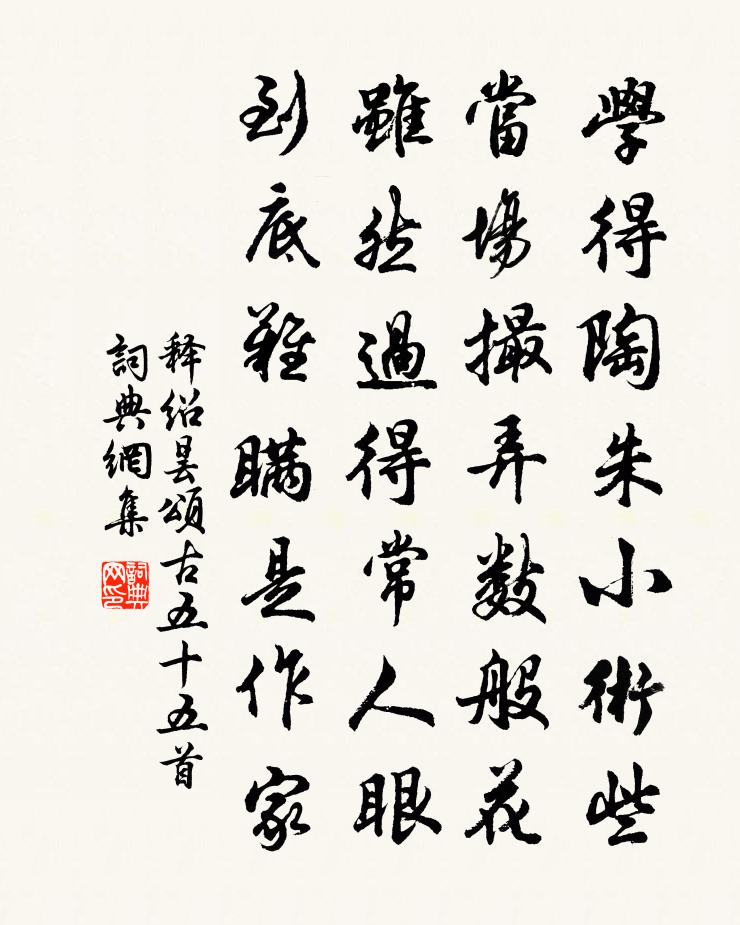 學得陶朱小術些
當場撮弄數般花
雖然過得常人眼
到底難瞞是作家
释绍昙頌古五十五首
詞典網集
詞典网印